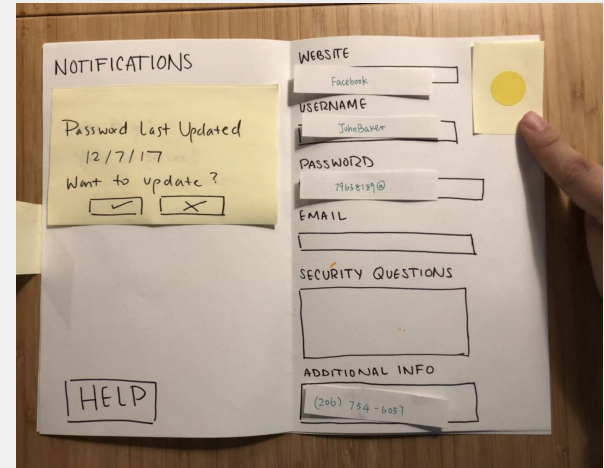 NOTIFICATIONS
Password Last Updated
12/7/17
Want to update?
HELP
WEBSITE
Facebook
USERNAME
JohnBaker
PASSWORD
79638189@
EMAIL
SECURITY QUESTIONS
ADDITIONAL INFO
(206) 754-6057